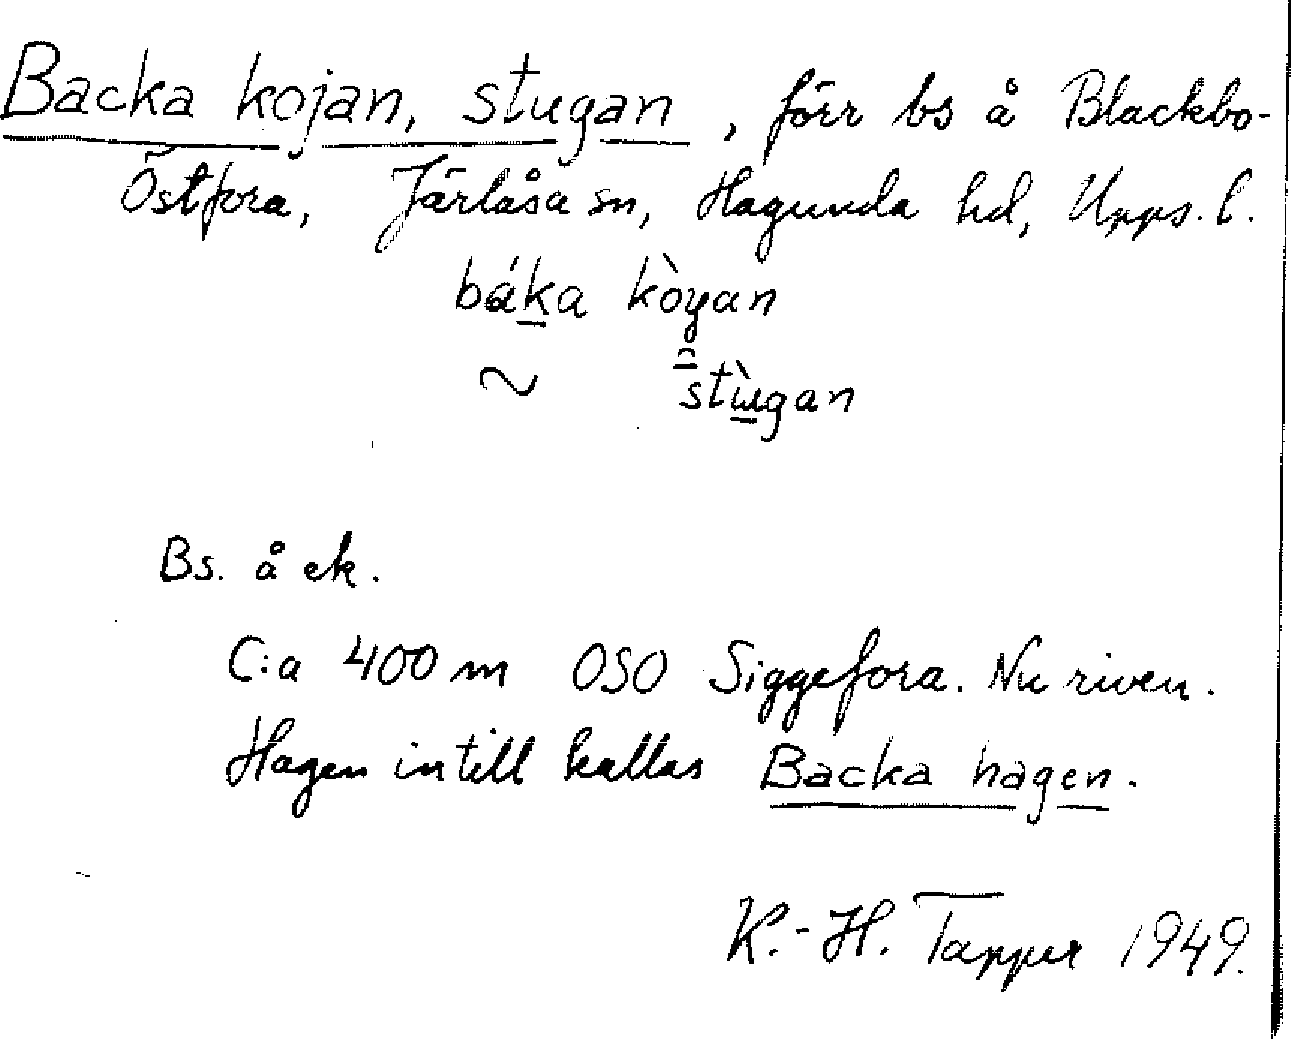 Backa kojan, stugan, förr bs å Blackbo-
Östfora, Järlåsa sn, Hagunda hd, Upps. l.
báka kòyan
~ stùgan
Bs. å ek.
C:a 400 m OSO Siggefora. Nu riven.
Hagen intill kallas Backa hagen.
K.-H. Tapper 1949.